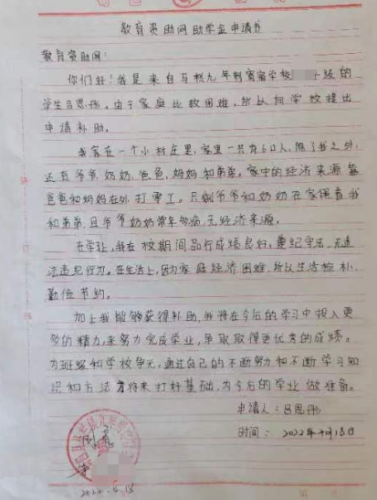 教育资助网助学金申请书
教育资助网:
你们好!我是来自 九年制寄宿学校 级的
学生吕思彤,由于家庭比较困难,所以向学校提出
申请补助。
我家在一个小村庄里,家里一共有6口人,除了我之外
还有爷爷奶奶、爸爸、妈妈和弟弟,家中的经济来源靠
爸爸和妈妈在外打零工。只剩爷爷和奶奶在家照看我
和弟弟,且爷爷奶奶常年多病,无经济来源。
在学校,我在校期间品行成绩良好,遵纪守法,无违
法违纪行为。在生活上,因为家庭经济困难,所以生活俭朴,
勤俭节约。
如上我能够获得补助,我将在今后的学习中投入更
多的精力,来努力完成学业,争取取得更优秀的成绩。
为班级和学校争光,通过自己的不断努力和不断学习知
识和方法为将来打好基础,为今后的学业做准备。
申请人:吕思彤
时间: 2022年 月15日